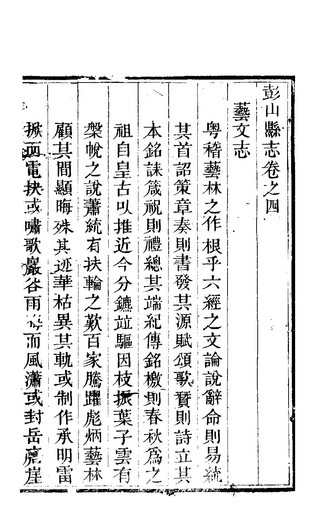 彭山縣志卷之四
藝文志
粵稽藝林之作根乎六經之文論說辭命則易統
其首詔策章奏則書發其源賦頌歌賛則詩立其
本銘誄箴祝則禮總其端紀傳銘檄則春秋爲之
祖自皇古以推近今分鑣竝驅因枝振葉子雲有
槃帨之說蕭統有扶輪之歎百家騰躍彪炳藝林
顧其間顯晦殊其迹華枯異其軌或制作承明雷
掀而電抉或嘯歌巖谷雨而風瀟或封岳磨崖